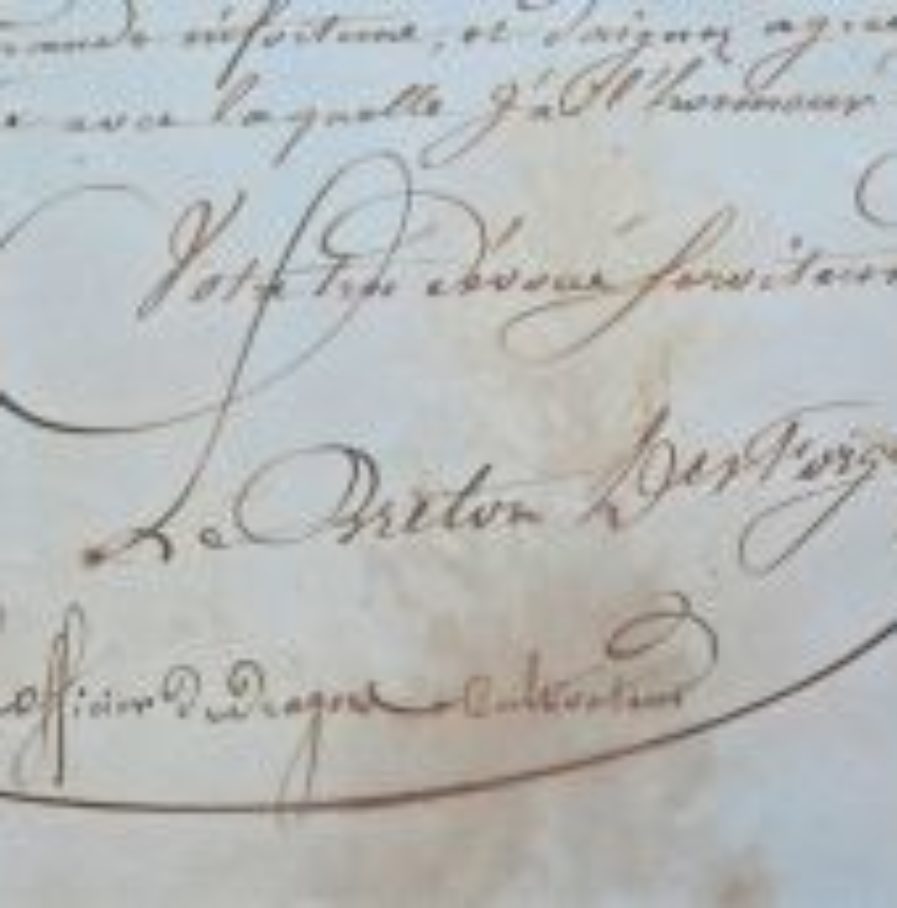 infortune, et daignez agrée
avec laquelle j'ai l'honneur
Votre très dévoué serviteur
Le Breton Des Forge
officier de dragons cultivateur